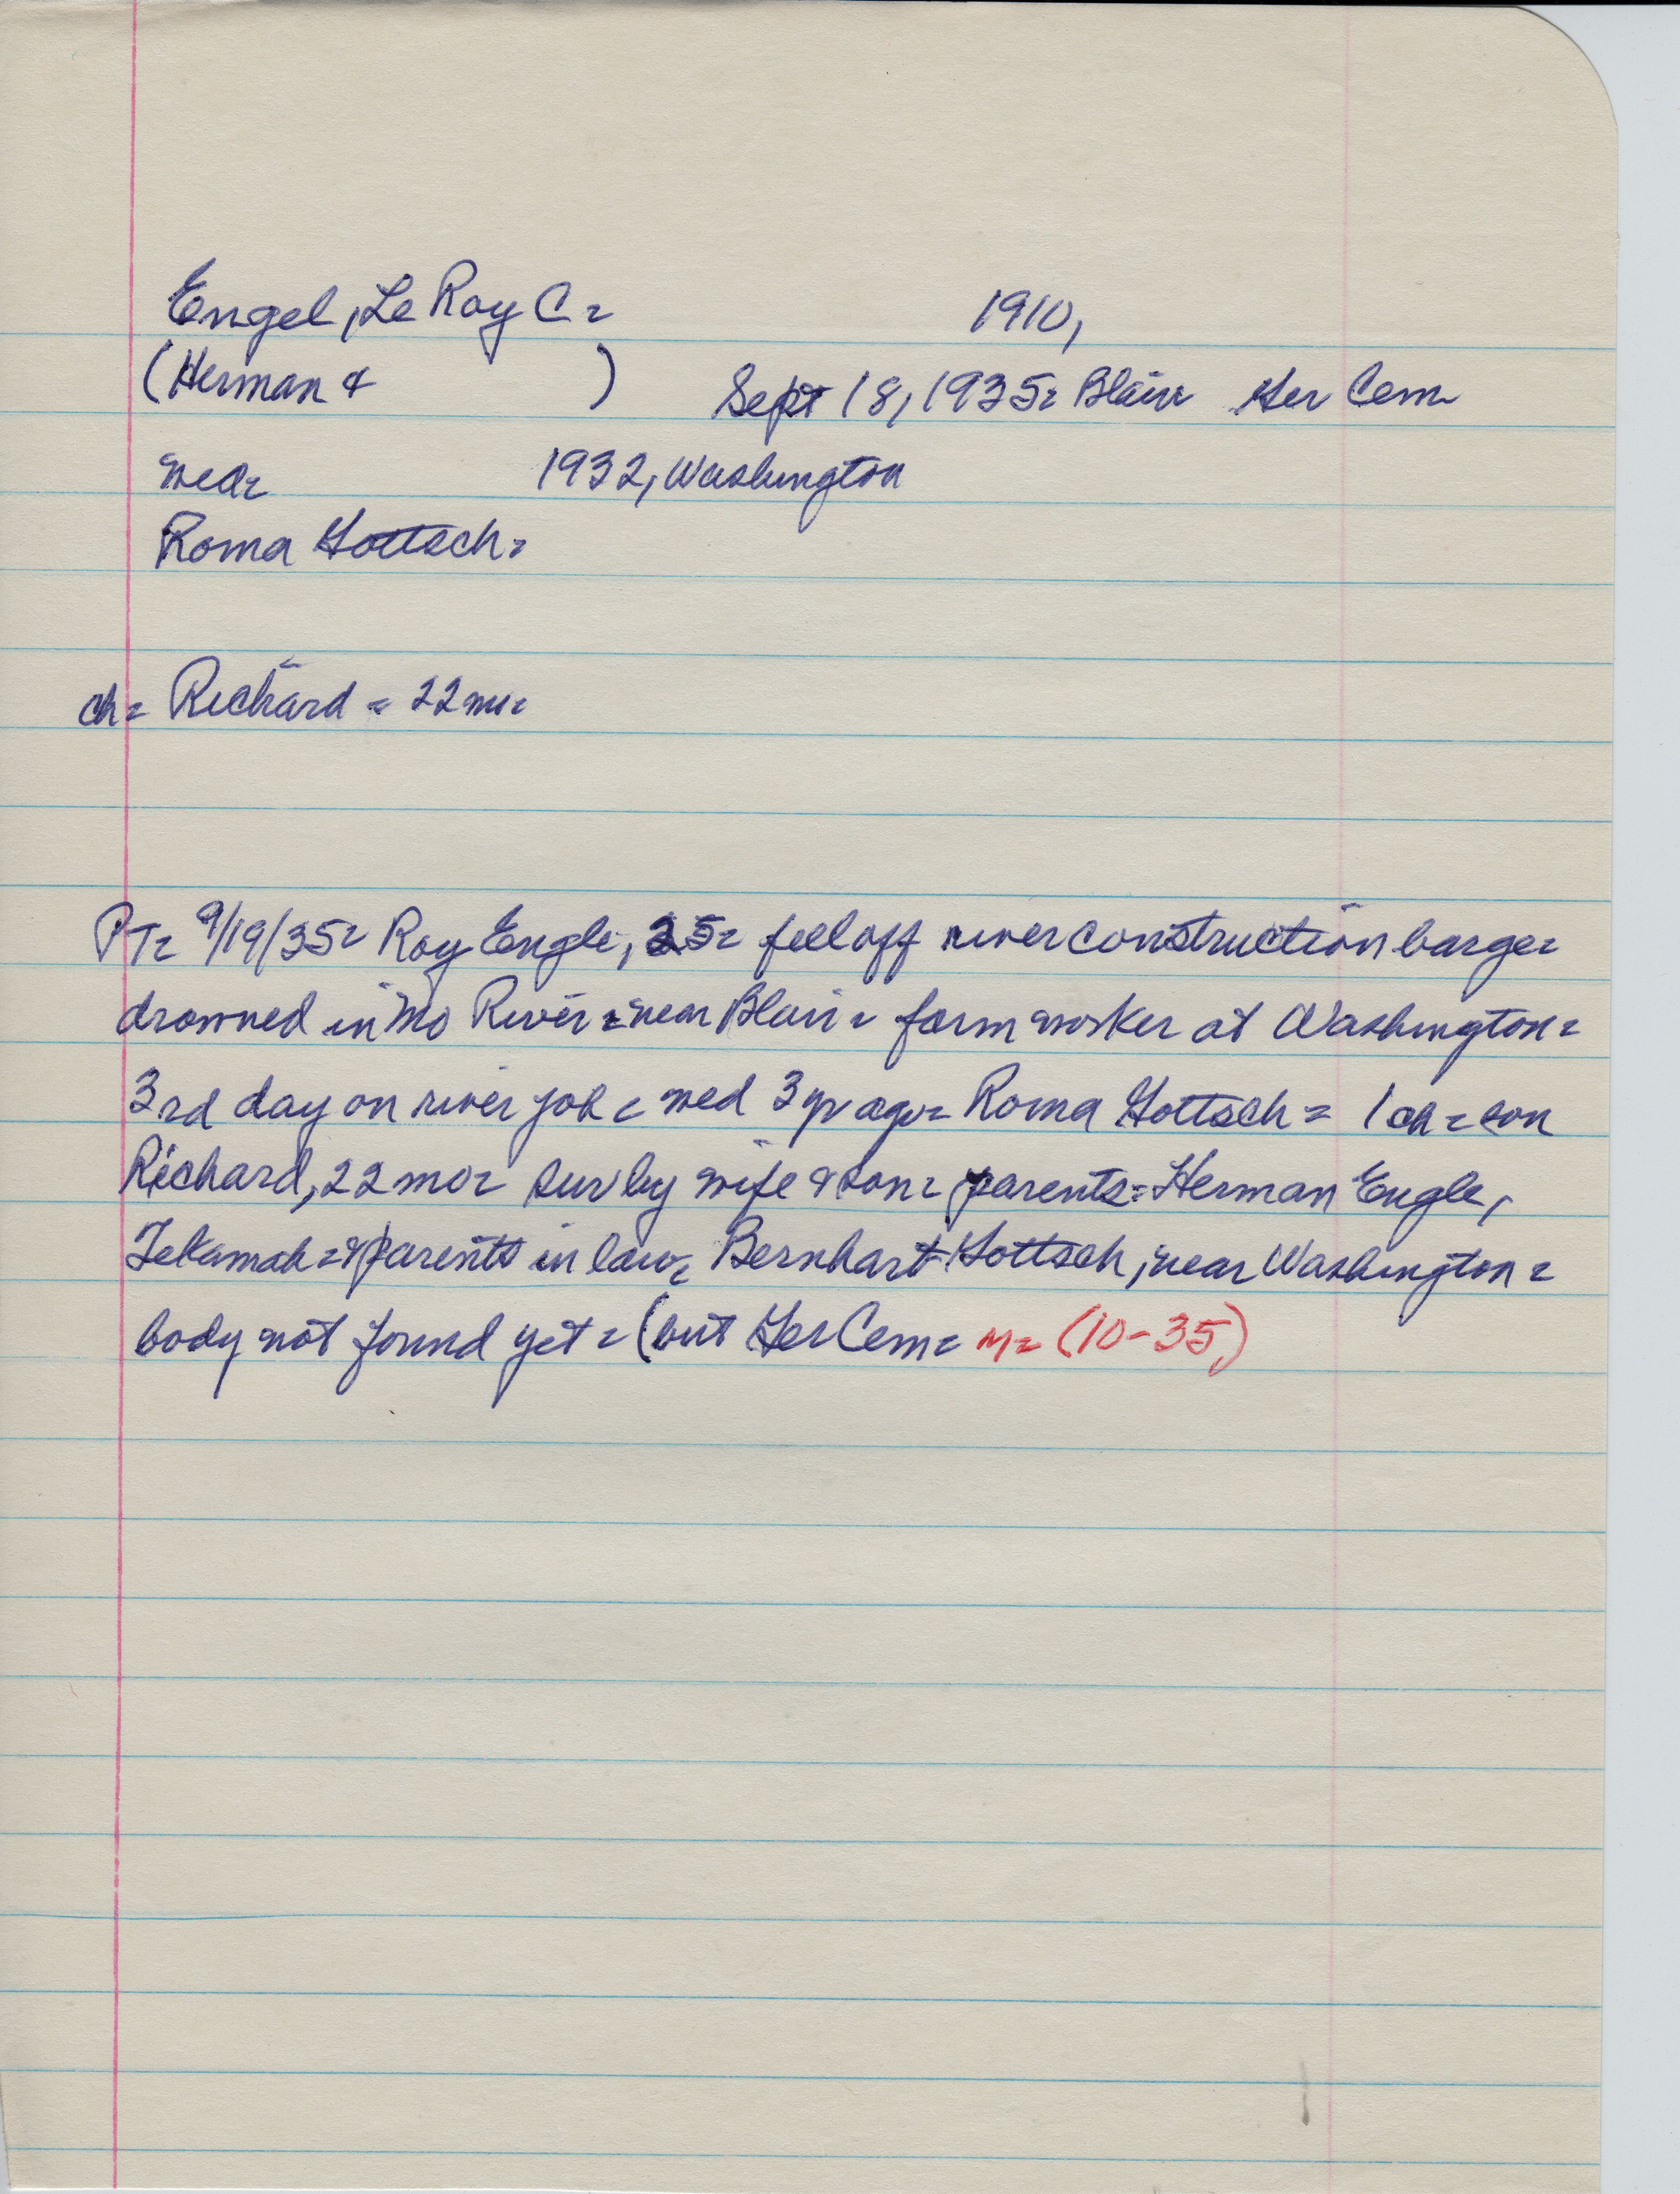 Engel, Le Roy C= 1910,
(Herman & ) Sept 18, 1935= Blair= Her Cem
wed= 1932, Washington
Roma Gottsch=
ch= Richard = 22 mo=
PT= 9/19/35= Roy Engle, 25= fell off river construction barge=
drowned in Mo River = near Blair = farm worker at Washington =
3rd day on river job = wed 3 yr ago= Roma Gottsch = 1 ch = son
Richard, 22 mo= sur by wife & son= parents= Herman Engle,
Tekamah = & parents in law= Bernhart Gottsch, near Washington =
body not found yet = (but Her Cem= M= (10-35)